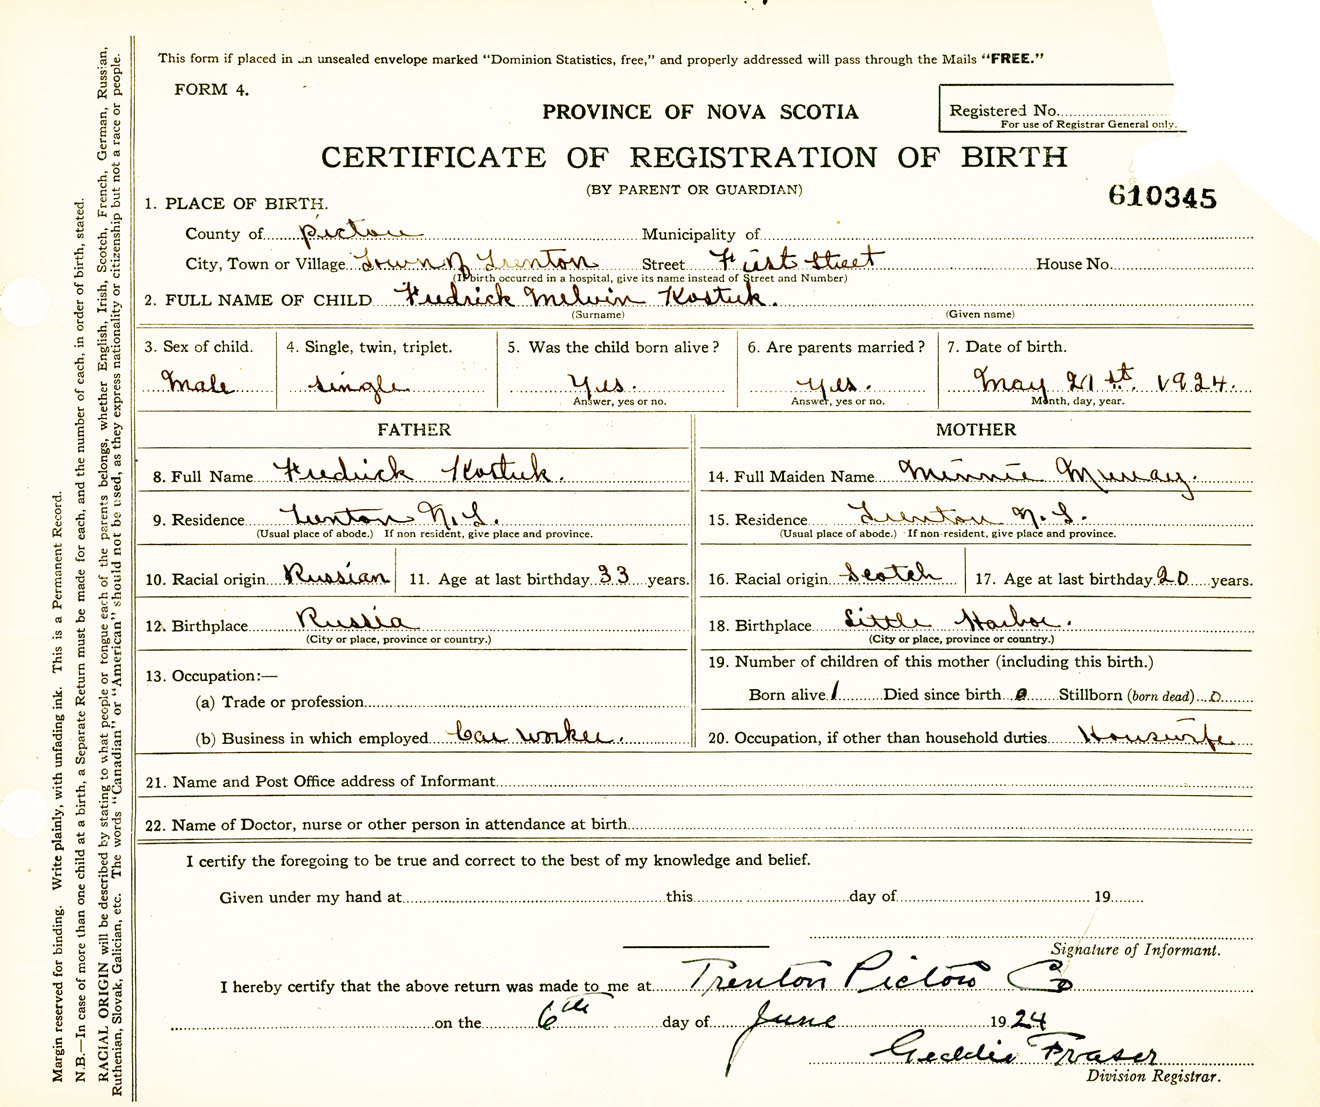 This form if placed in an unsealed envelope marked "Dominion Statistics, free," and properly addressed will pass through the Mails "FREE."
FORM 4.
PROVINCE OF NOVA SCOTIA
Registered No.
For use of Registrar General only.
CERTIFICATE OF REGISTRATION OF BIRTH
(BY PARENT OR GUARDIAN)
610345
1. PLACE OF BIRTH.
County of Pictou Municipality of
City, Town or Village Town of Trenton Street First Street House No.
(If birth occurred in a hospital, give its name instead of Street and Number)
2. FULL NAME OF CHILD Fredrick Melvin Kostuk.
(Surname) (Given name)
3. Sex of child. 4. Single, twin, triplet. 5. Was the child born alive? 6. Are parents married? 7. Date of birth.
Male single Yes. Yes. May 21st. 1924.
Answer, yes or no. Answer, yes or no. Month, day, year.
FATHER MOTHER
8. Full Name Fredrick Kostuk. 14. Full Maiden Name Minnie Murray.
9. Residence Trenton N.S. 15. Residence Trenton N.S.
(Usual place of abode.) If non resident, give place and province. (Usual place of abode.) If non-resident, give place and province.
10. Racial origin Russian 11. Age at last birthday 33 years. 16. Racial origin Scotch 17. Age at last birthday 20 years.
12. Birthplace Russia 18. Birthplace Little Harbor.
(City or place, province or country.) (City or place, province or country.)
13. Occupation:— 19. Number of children of this mother (including this birth.)
(a) Trade or profession Born alive 1 Died since birth 0 Stillborn (born dead) 0
(b) Business in which employed Car worker. 20. Occupation, if other than household duties Houswife
21. Name and Post Office address of Informant
22. Name of Doctor, nurse or other person in attendance at birth
I certify the foregoing to be true and correct to the best of my knowledge and belief.
Given under my hand at this day of 19
Signature of Informant.
I hereby certify that the above return was made to me at Trenton Pictou Co
on the 6th day of June 1924
Geddie Fraser
Division Registrar.
Margin reserved for binding. Write plainly, with unfading ink. This is a Permanent Record.
N.B.—In case of more than one child at a birth, a Separate Return must be made for each, and the number of each, in order of birth, stated.
RACIAL ORIGIN will be described by stating to what people or tongue each of the parents belongs, whether English, Irish, Scotch, French, German, Russian,
Ruthenian, Slovak, Galician, etc. The words "Canadian" or "American" should not be used, as they express nationality or citizenship but not a race or people.